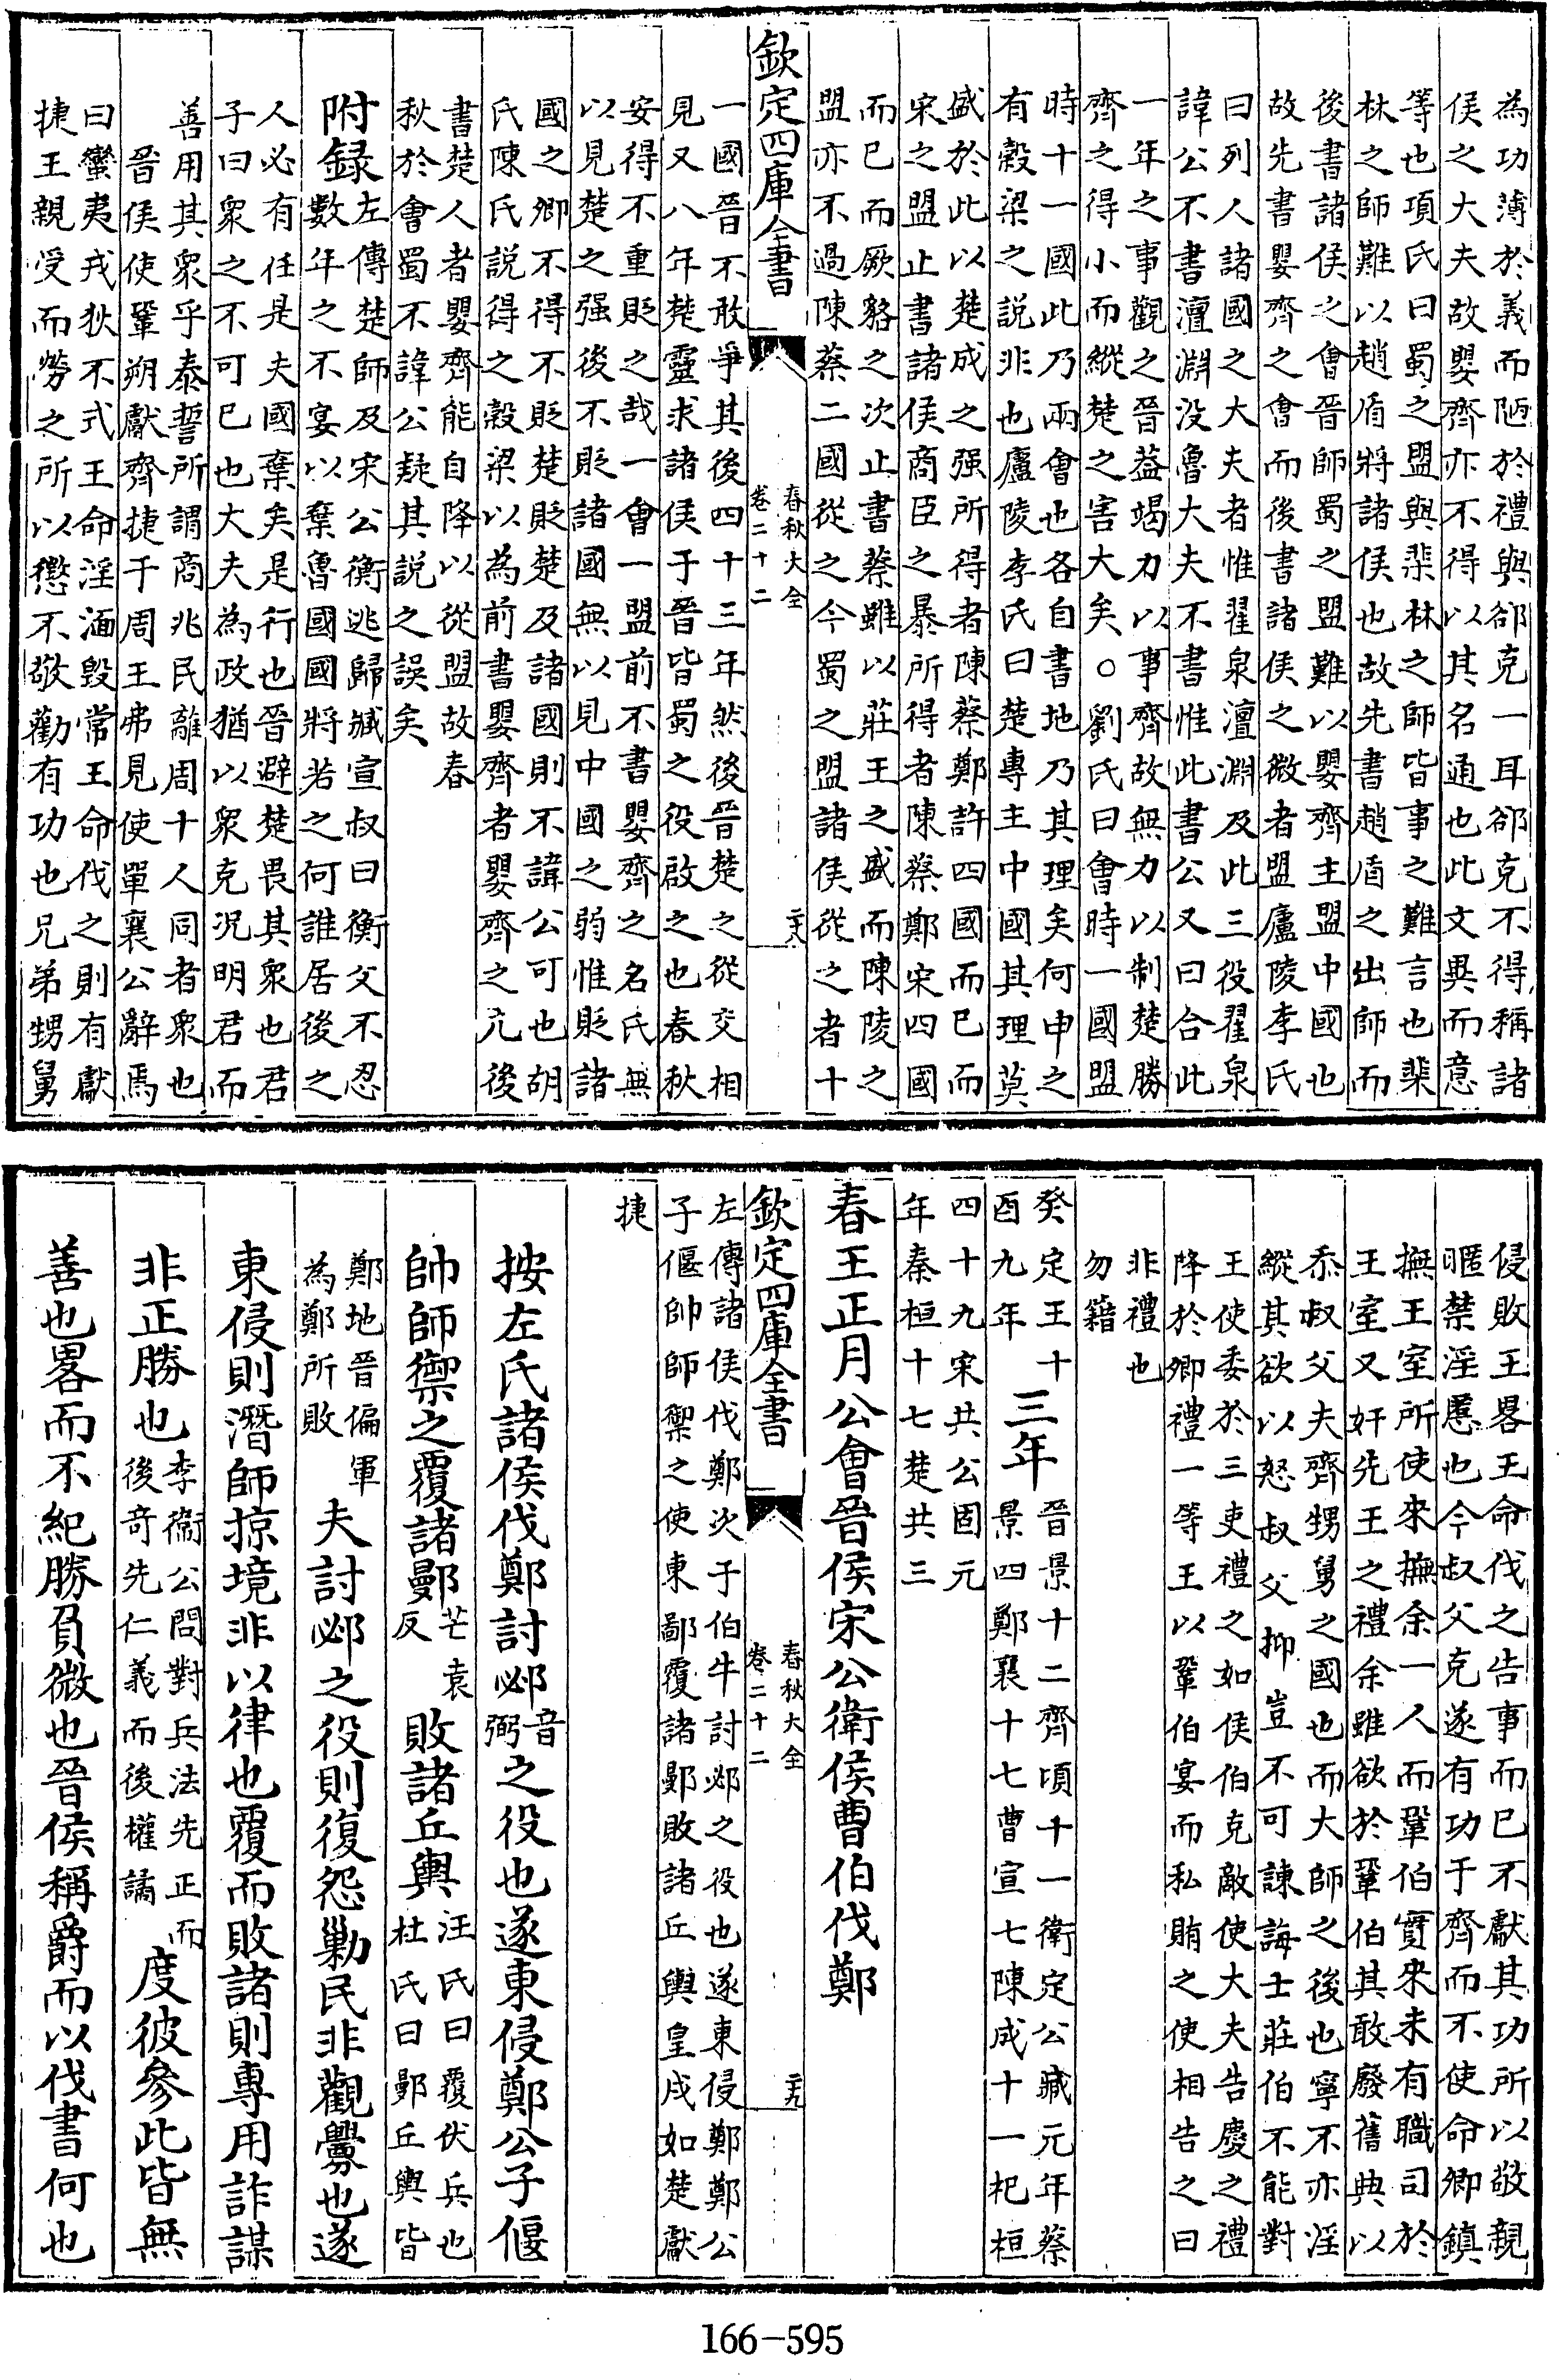 為功薄於義而陋於禮與郤克一耳郤克不得稱諸
侯之大夫故嬰齊亦不得以其名通也此文異而意
等也項氏曰蜀之盟與棐林之師皆事之難言也棐
林之師難以趙盾將諸侯也故先書趙盾之出師而
後書諸侯之會晉師蜀之盟難以嬰齊主盟中國也
故先書嬰齊之會而後書諸侯之微者盟廬陵李氏
曰列人諸國之大夫者惟翟泉澶淵及此三役翟泉
諱公不書澶淵没魯大夫不書惟此書公又曰合此
一年之事觀之晉益竭力以事齊故無力以制楚勝
齊之得小而縱楚之害大矣○劉氏曰會時一國盟
時十一國此乃兩會也各自書地乃其理矣何申之
有穀梁之説非也廬陵李氏曰楚專主中國其理莫
盛於此以楚成之强所得者陳蔡鄭許四國而已而
宋之盟止書諸侯商臣之暴所得者陳蔡鄭宋四國
而已而厥貉之次止書蔡雖以莊王之盛而陳陵之
盟亦不過陳蔡二國從之今蜀之盟諸侯從之者十
欽定四庫全書
春秋大全
卷二十二
二十八
一國晉不敢爭其後四十三年然後晉楚之從交相
見又八年楚靈求諸侯于晉皆蜀之役啟之也春秋
安得不重貶之哉一會一盟前不書嬰齊之名氏無
以見楚之强後不貶諸國無以見中國之弱惟貶諸
國之卿不得不貶楚貶楚及諸國則不諱公可也胡
氏陳氏説得之穀梁以為前書嬰齊者嬰齊之亢後
書楚人者嬰齊能自降以從盟故春
秋於會蜀不諱公疑其説之誤矣
附録
左傳楚師及宋公衡逃歸臧宣叔曰衡父不忍
數年之不宴以棄魯國國將若之何誰居後之
人必有任是夫國棄矣是行也晉避楚畏其衆也君
子曰衆之不可已也大夫為政猶以衆克况明君而
善用其衆乎泰誓所謂商兆民離周十人同者衆也
晉侯使鞏朔獻齊捷于周王弗見使單襄公辭焉
曰蠻夷戎狄不式王命淫湎毀常王命伐之則有獻
捷王親受而勞之所以懲不敬勸有功也兄弟甥舅
侵敗王畧王命伐之告事而已不獻其功所以敬親
暱禁淫慝也今叔父克遂有功于齊而不使命卿鎮
撫王室所使來撫余一人而鞏伯實來未有職司於
王室又奸先王之禮余雖欲於鞏伯其敢廢舊典以
忝叔父夫齊甥舅之國也而大師之後也寧不亦淫
縱其欲以怒叔父抑豈不可諫誨士莊伯不能對
王使委於三吏禮之如侯伯克敵使大夫告慶之禮
降於卿禮一等王以鞏伯宴而私賄之使相告之曰
非禮也
勿籍
癸酉
定王十
九年
三年
晉景十二齊頃十一衛定公臧元年蔡
景四鄭襄十七曹宣七陳成十一杞桓
四十九宋共公固元
年秦桓十七楚共三
春王正月公會晉侯宋公衛侯曹伯伐鄭
欽定四庫全書
春秋大全
卷二十二
二十九
左傳諸侯伐鄭次于伯牛討邲之役也遂東侵鄭鄭公
子偃帥師禦之使東鄙覆諸鄤敗諸丘輿皇戌如楚獻
捷
按左氏諸侯伐鄭討邲音弼之役也遂東侵鄭公子偃
帥師禦之覆諸鄤芒袁反敗諸丘輿汪氏曰覆伏兵也杜氏曰鄤丘輿皆
鄭地晉偏軍為鄭所敗夫討邲之役則復怨勦民非觀釁也遂
東侵則潛師掠境非以律也覆而敗諸則專用詐謀
非正勝也李衞公問對兵法先正而後奇先仁義而後權譎度彼參此皆無
善也畧而不紀勝負微也晉侯稱爵而以伐書何也
166-595